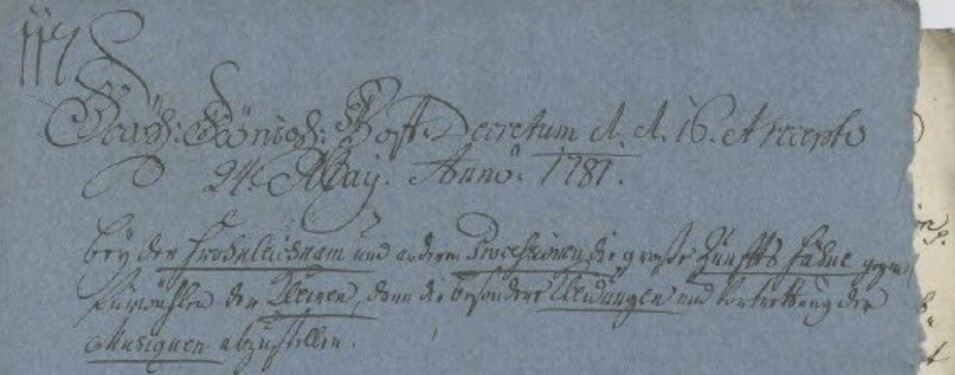 117
Kayß: Königl: Hoff Decretum d. d. 16. et recepto
24. May. Anno. 1781.
bey der Frohnleichnam und andern Processionen die große Zunffts Fahne gegen
der Kleinen, dann die besondere Kleidungen und der
Musiquen abzustellen.